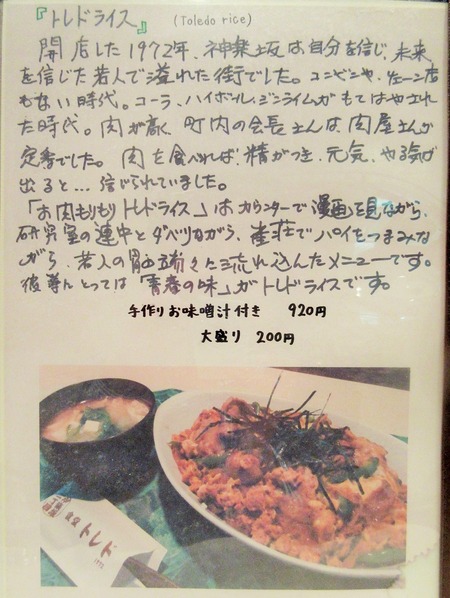 『トレドライス』 (Toledo rice)
開店した1972年、神楽坂は自分を信じ、未来
を信じた若人で溢れた街でした。コンビニや、チェーン店
もない時代。コーラ、ハイボール、ジンライムがもてはやされ
た時代。肉が高く、町内の会長さんは肉屋さんが
定番でした。肉を食べれば、精がつき、元気、やる気が
出ると…信じられていました。
「お肉もりもりトレドライス」はカウンターで漫画を見ながら、
研究室の連中とダベリながら、雀荘でパイをつまみな
がら、若人の胃に流れ込んだメニューです。
彼等にとっては「青春の味」がトレドライスです。
手作りお味噌汁付き 920円
大盛り 200円
食堂 トレド